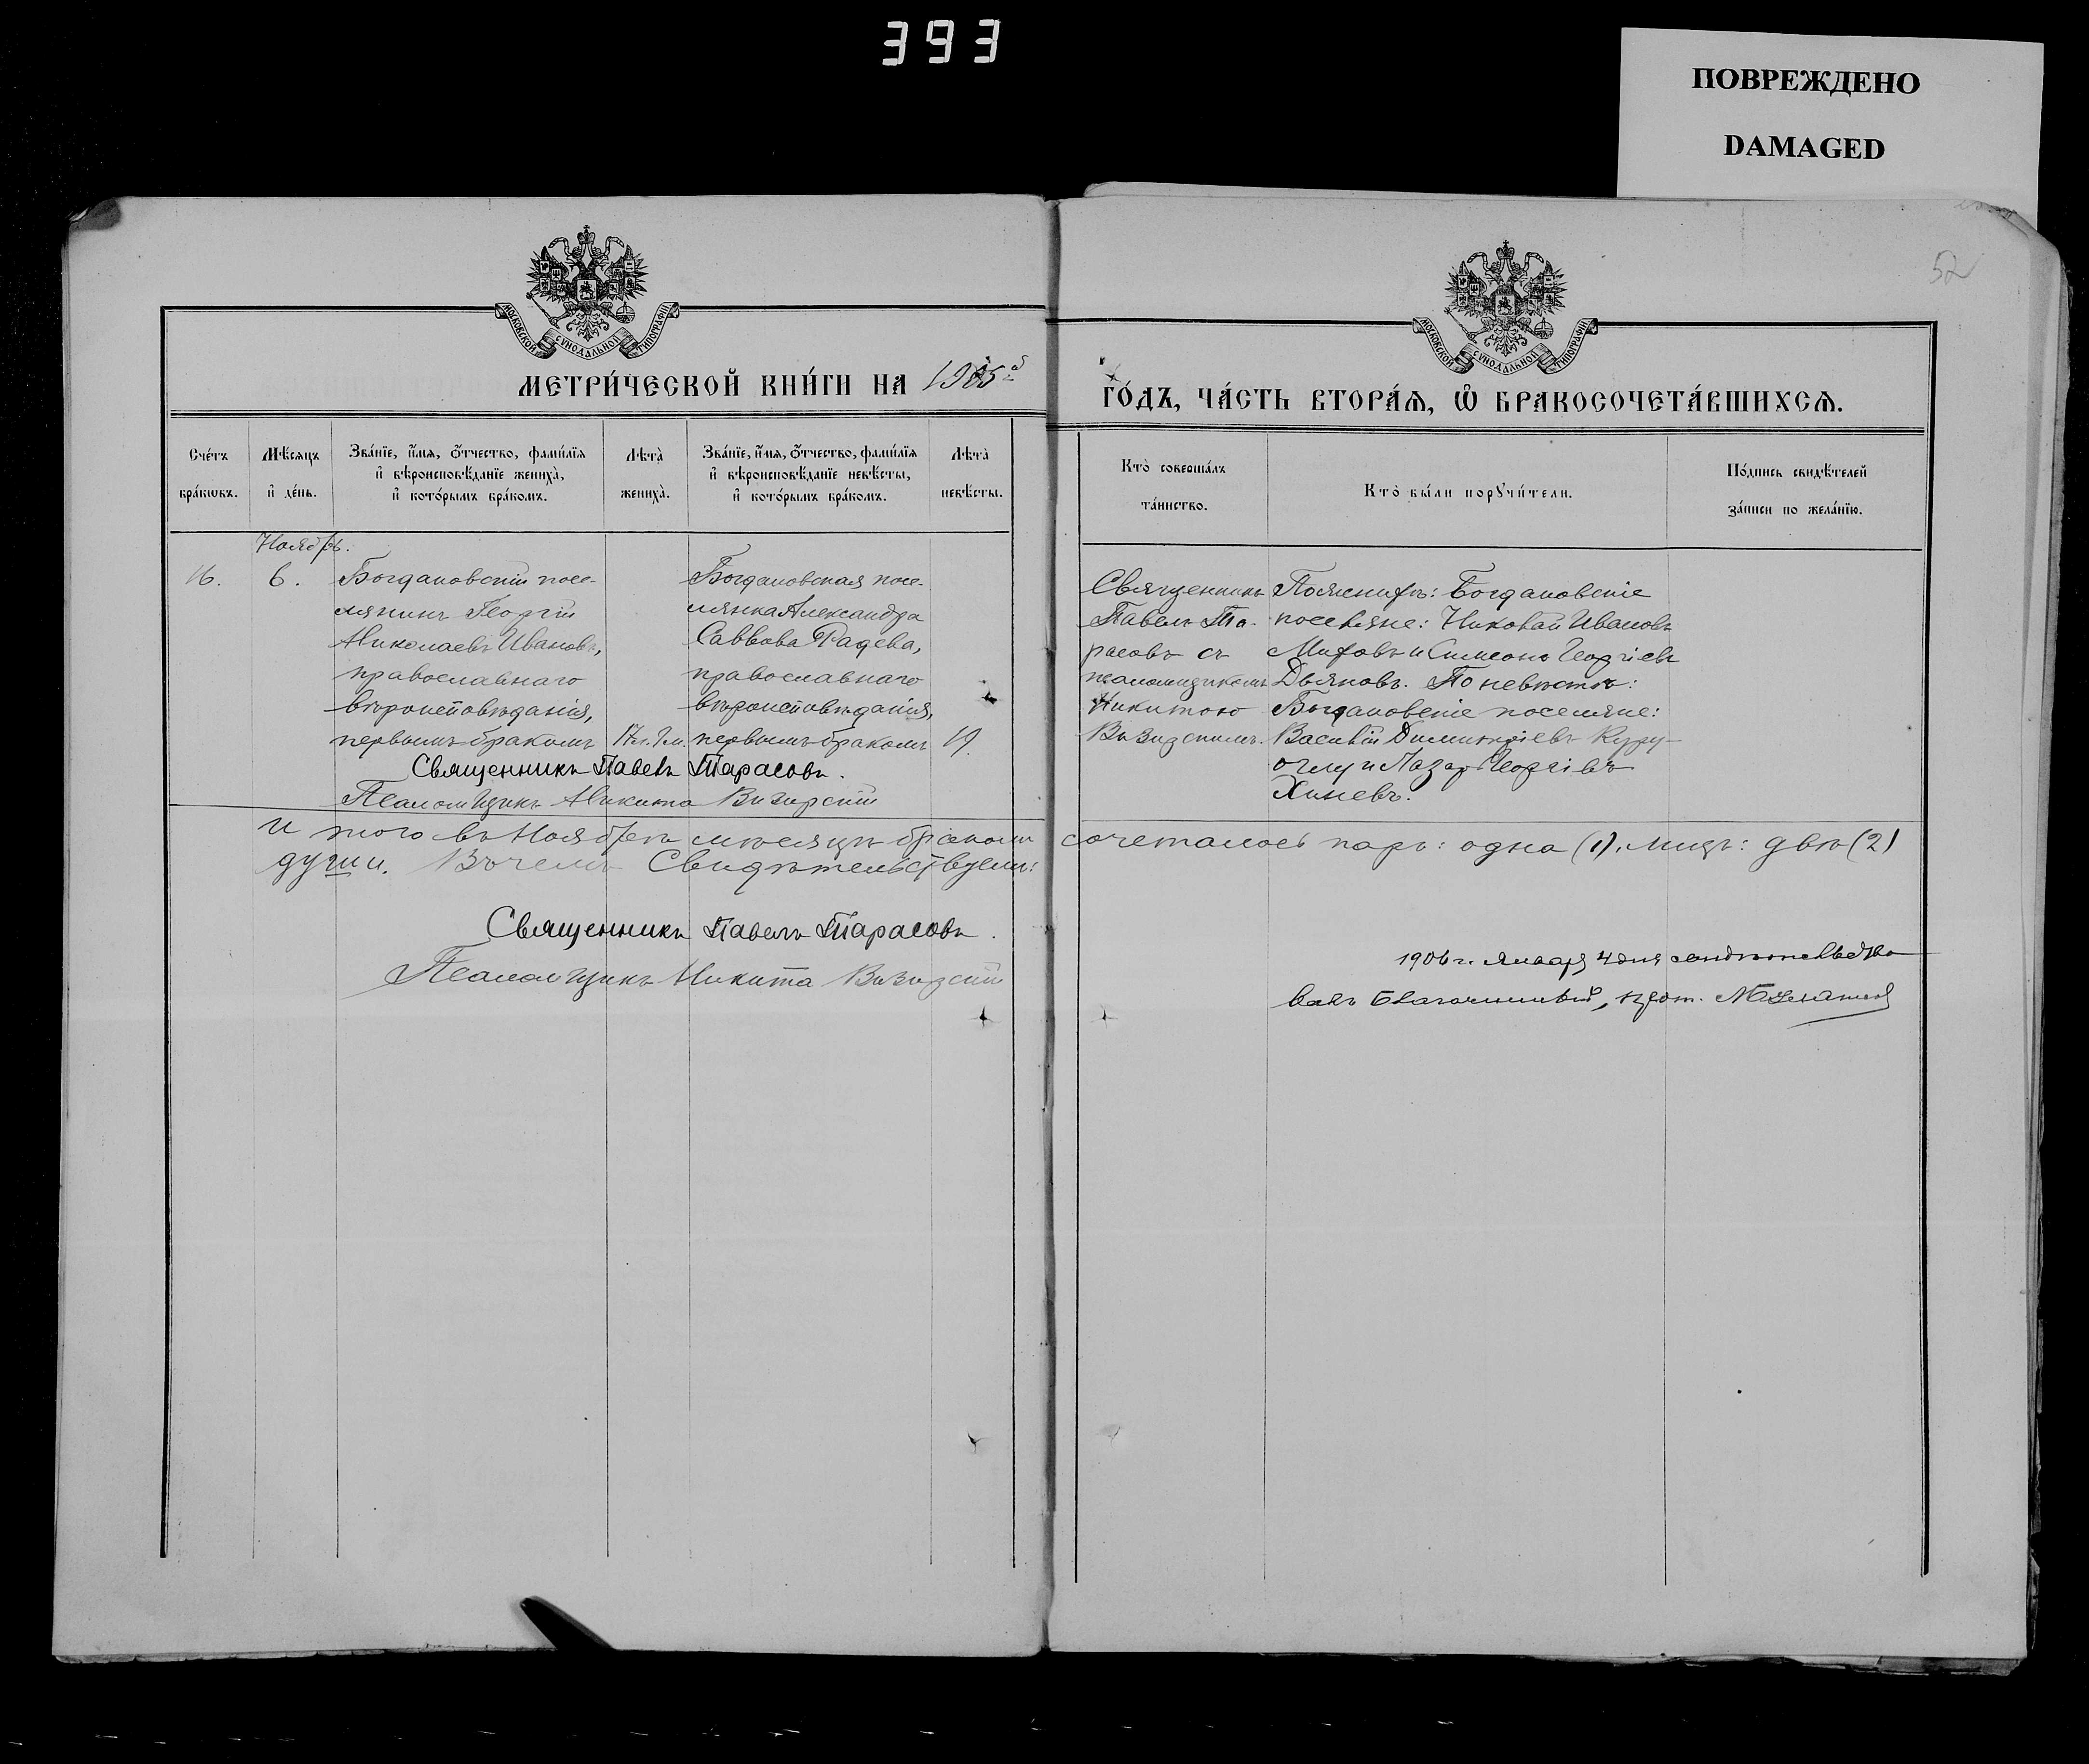 393
ПОВРЕЖДЕНО
DAMAGED
52
МОСКОВСКОЙ СѴНОДАЛЬНОЙ ТИПОГРАФІИ
МОСКОВСКОЙ СѴНОДАЛЬНОЙ ТИПОГРАФІИ
МЕТРИ́ЧЕСКОЙ КНИ́ГИ НА 1905й
ГО́ДЪ, ЧА́СТЬ ВТОРА́Ѧ, Ѿ БРАКОСОЧЕТА́ВШИХСѦ.
Сче́тъ бра́кωвъ.
Мѣ́сяцъ и҆ де́нь.
Зва́нїе, и҆́мя, ѻ҆́тчество, фами́лїя
и҆ вѣроисповѣ́данїе жениха̀,
и҆ кото́рымъ бра́комъ.
Лѣта̀ жениха̀.
Зва́нїе, и҆́мя, ѻ҆́тчество, фами́лїя
и҆ вѣроисповѣ́данїе невѣ́сты,
и҆ кото́рымъ бра́комъ.
Лѣта̀ невѣ́сты.
Кто̀ соверша́лъ
та́инство.
Кто̀ бы́ли порꙋчи́тели.
По́дпись свидѣ́телей
за́писи по жела́нїю.
Ноябрь.
16.
6.
Богдановскій посе-
лянинъ Георгій
Николаевъ Ивановъ,
православнаго
вѣроисповѣданія,
первымъ бракомъ
17 л. 9 м.
Богдановская посе-
лянка Александра
Саввова Радева,
православнаго
вѣроисповѣданія,
первымъ бракомъ
19.
Священникъ
Павелъ Та-
расовъ съ
псаломщикомъ
Никитою
Визирскимъ.
По женихѣ: Богдановскіе
поселяне: Николай Ивановъ
Митовъ и Симеонъ Георгіевъ
Дьяковъ. По невѣстѣ:
Богдановскіе поселяне:
Василій Димитріевъ Куру-
оглу и Лазарь Георгіевъ
Хиневъ.
Священникъ Павелъ Тарасовъ.
Псаломщикъ Никита Визирскій
Итого въ Ноябрѣ мѣсяцѣ бракомъ сочеталось паръ: одна (1), лицъ: двѣ (2)
души. Въ чемъ Свидѣтельствуемъ:
Священникъ Павелъ Тарасовъ.
Псаломщикъ Никита Визирскій
1906 г. Января 4 дня свидѣтельство-
валъ Благочинный, прот.